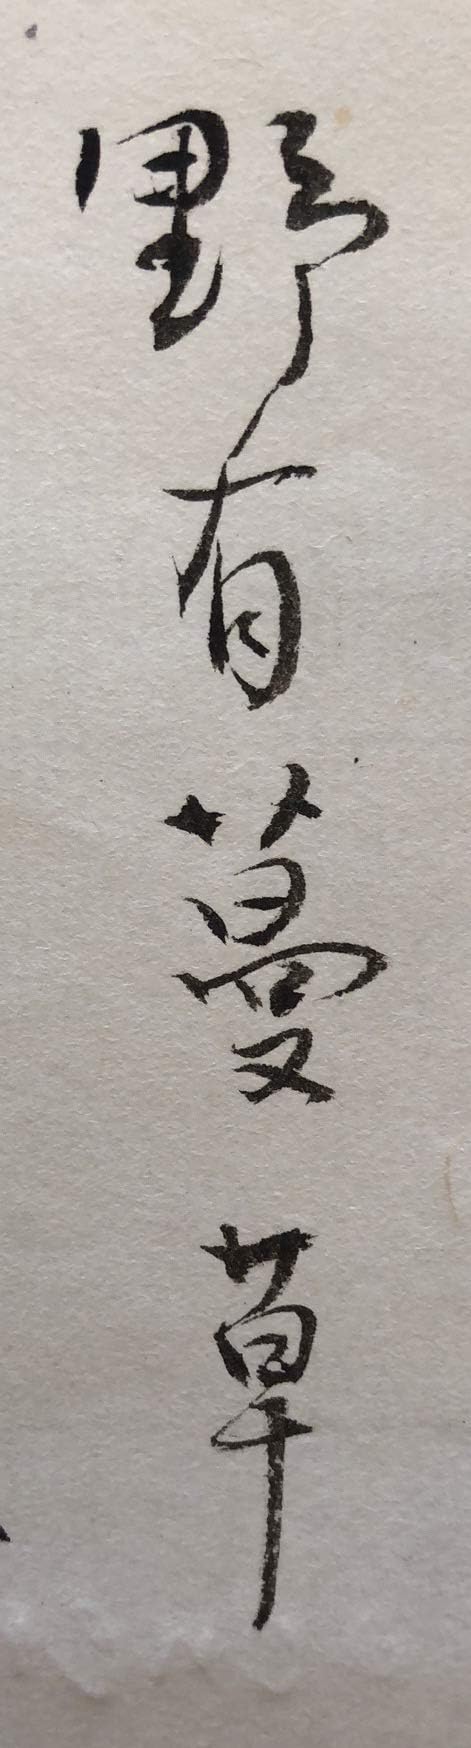 野有蔓草